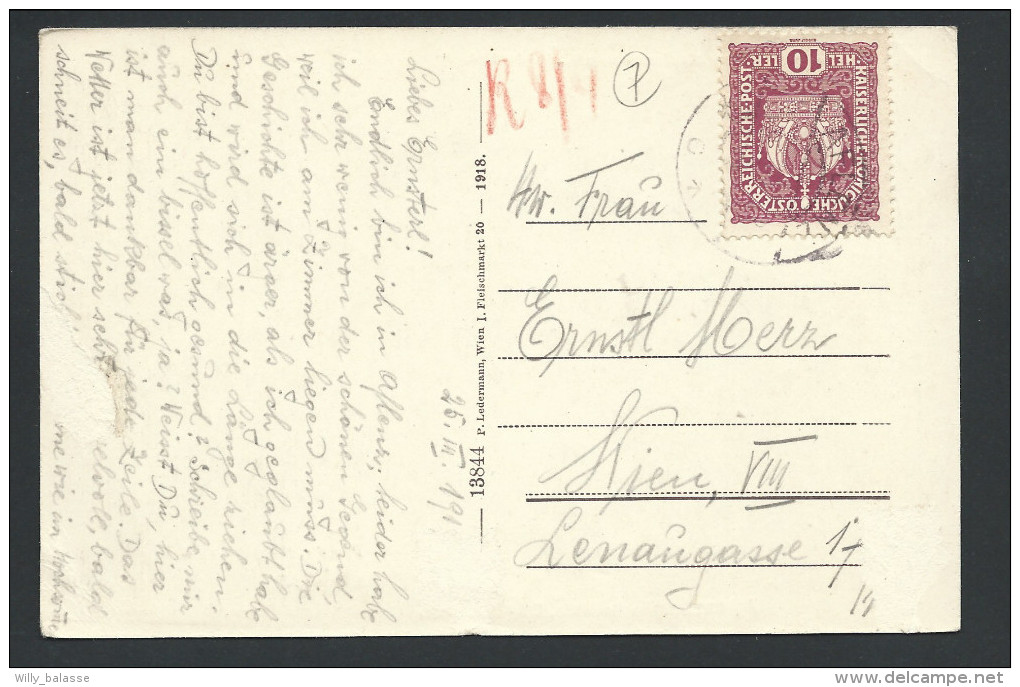 Liebs Ernsterl!
Endlich bin ich in Aflenz; leider habe
ich sehr wenig von der schönen Gegend,
weil ich am Zimmer liegen muss. Die
Geschichte ist ärger, als ich geglaubt habe
und wird sich in die Länge ziehen.
Du bist hoffentlich gesund? Schreibe mir
auch ein bissel was, ja? Weisst Du, hier
ist man dankbar für jede Zeile. Das
Wetter ist jetzt hier sehr bald
schneit es, bald wie im
25. III. 191
13844 P. Ledermann, Wien I, Fleischmarkt 20 — 1918.
K
7
KAISERLICHE KÖNIGLICHE ÖSTERREICHISCHE POST
10
HELLER
Frau
Ernstl Merz
Wien, VIII
Lenaugasse 17
Willy_balasse